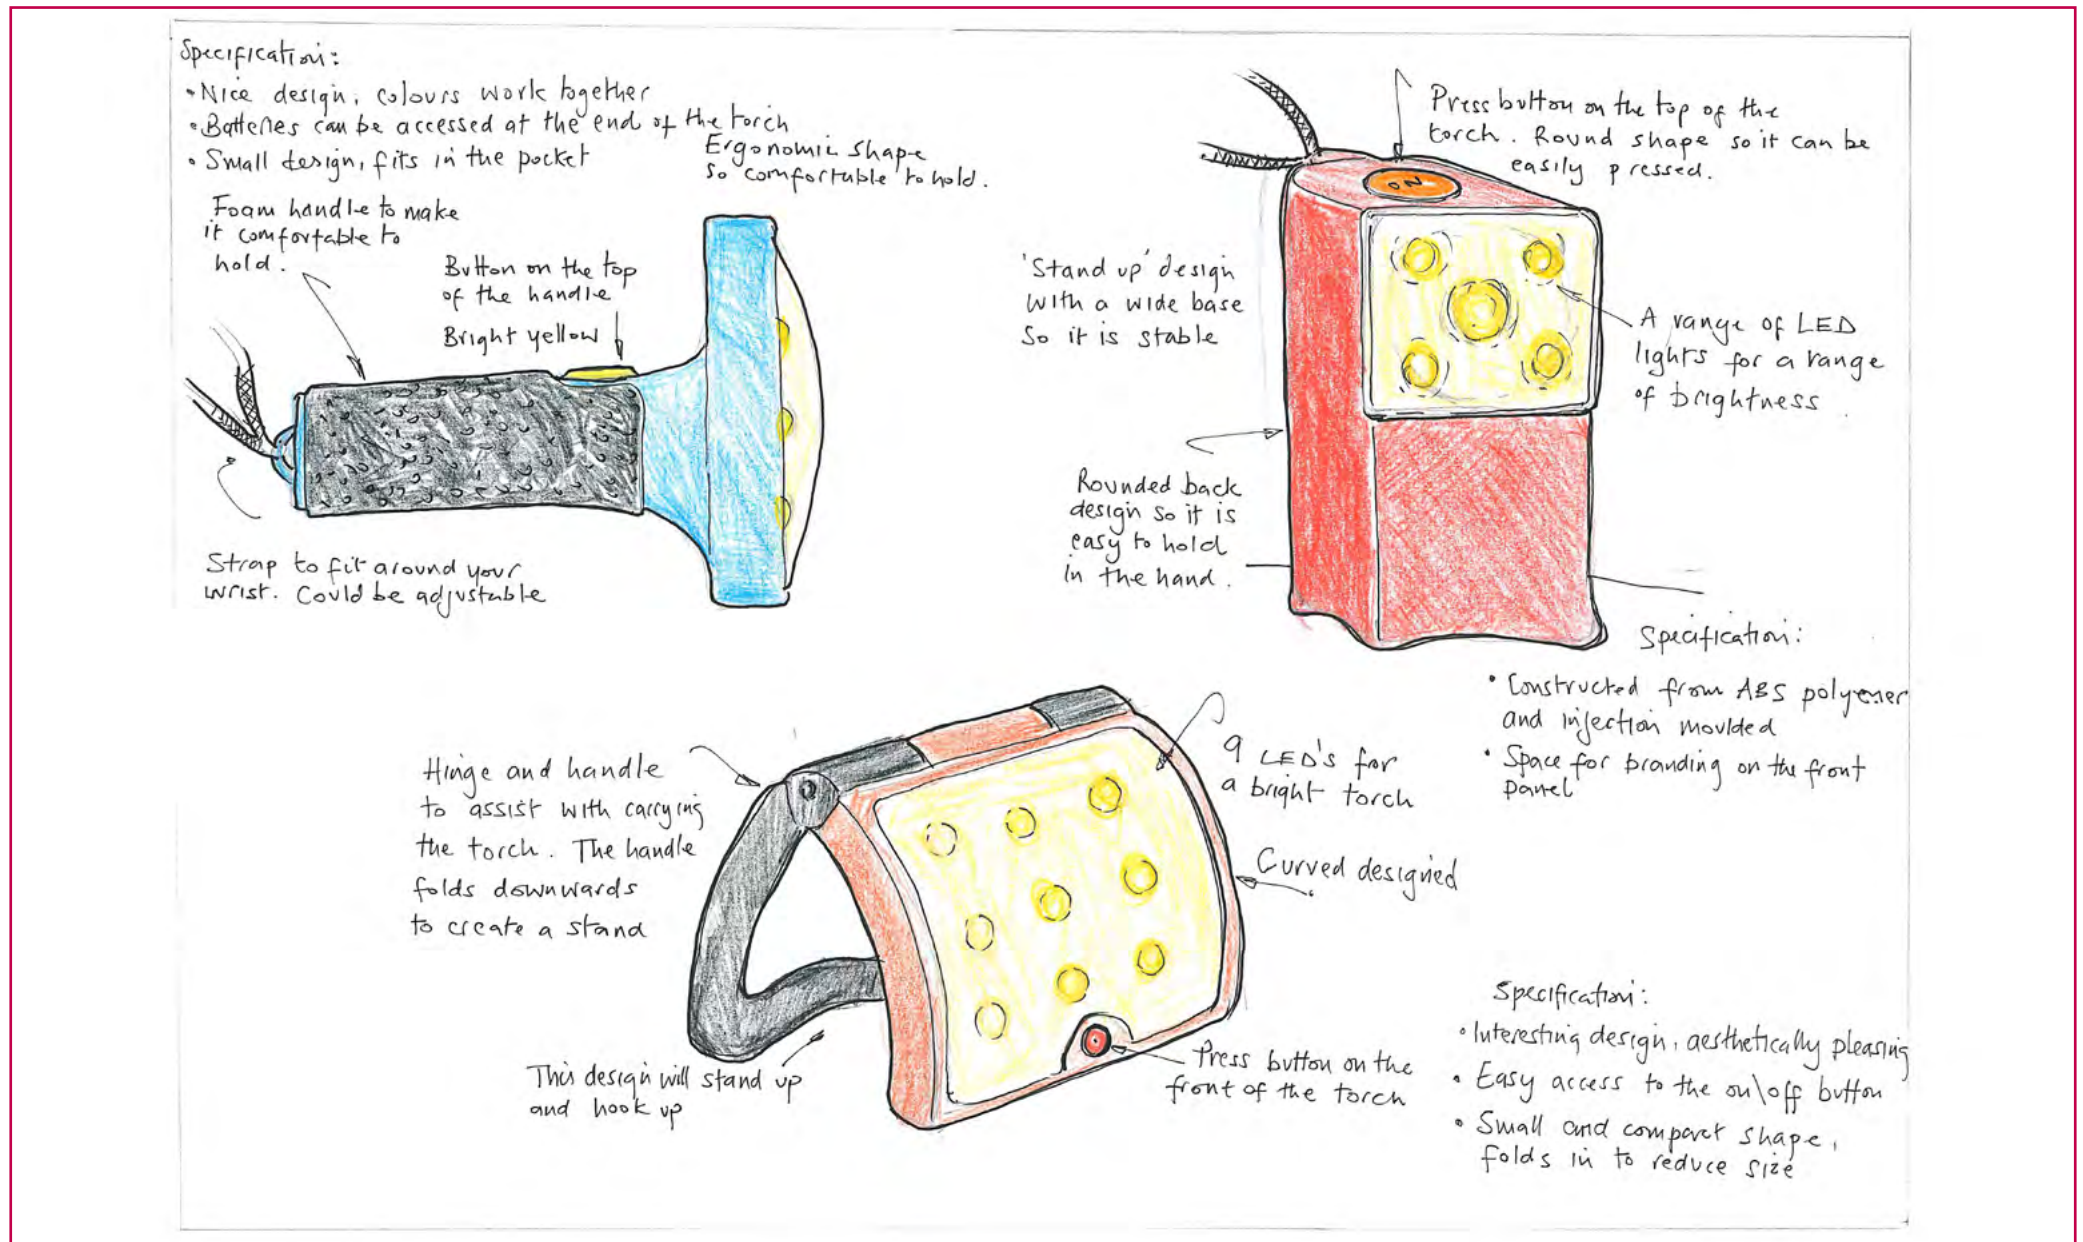 Specification:
• Nice design, colours work together
• Batteries can be accessed at the end of the torch
• Small design, fits in the pocket
Ergonomic shape
so comfortable to hold.
Foam handle to make
it comfortable to
hold.
Button on the top
of the handle
Bright yellow
Strap to fit around your
wrist. Could be adjustable
Press button on the top of the
torch. Round shape so it can be
easily pressed.
ON
'Stand up' design
with a wide base
so it is stable
A range of LED
lights for a range
of brightness.
Rounded back
design so it is
easy to hold
in the hand.
Specification:
• Constructed from ABS polymer
and injection moulded
• Space for branding on the front
panel
Hinge and handle
to assist with carrying
the torch. The handle
folds downwards
to create a stand
9 LED's for
a bright torch
Curved designed
This design will stand up
and hook up
Press button on the
front of the torch
Specification:
• Interesting design, aesthetically pleasing
• Easy access to the on\off button
• Small and compact shape,
folds in to reduce size